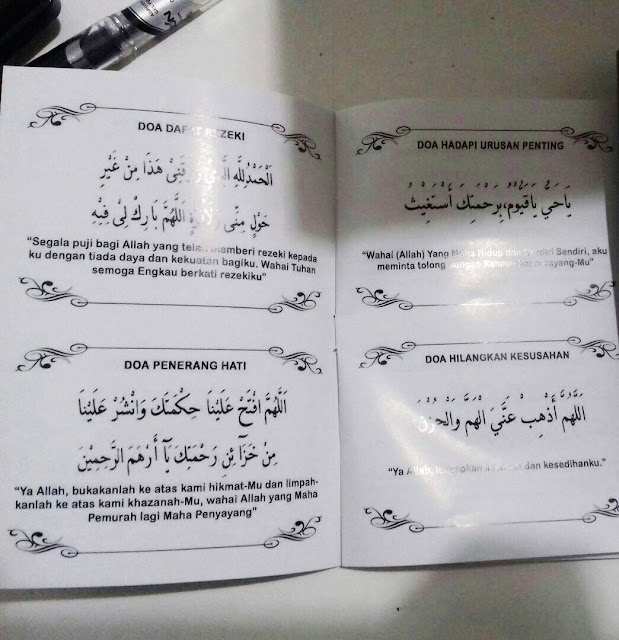 DOA DAPAT REZEKI
الْحَمْدُلِلَّهِ الَّذِي رَزَقَنِيْ هَذَا مِنْ غَيْرِ
حَوْلٍ مِنِّى وَلَا قُوَّةٍ اَللَّهُمَّ بَارِكْ لِيْ فِيْهِ
“Segala puji bagi Allah yang telah memberi rezeki kepada
ku dengan tiada daya dan kekuatan bagiku. Wahai Tuhan
semoga Engkau berkati rezekiku”
DOA PENERANG HATI
اَللَّهُمَّ افْتَحْ عَلَيْنَا حِكْمَتَكَ وَانْشُرْ عَلَيْنَا
مِنْ خَزَآئِنِ رَحْمَتِكَ يَآ أَرْهَمَ الرَّحِمِيْنَ
“Ya Allah, bukakanlah ke atas kami hikmat-Mu dan limpah-
kanlah ke atas kami khazanah-Mu, wahai Allah yang Maha
Pemurah lagi Maha Penyayang”
DOA HADAPI URUSAN PENTING
يَاحَيُّ يَاقَيُّوْمُ،بِرَحْمَتِكَ أَسْتَغِيْثُ
“Wahai (Allah) Yang Maha Hidup dan Berdiri Sendiri, aku
meminta tolong dengan Rahmat kasih sayang-Mu”
DOA HILANGKAN KESUSAHAN
اَللَّهُمَّ أَذْهِبْ عَنِّيَ الْهَمَّ وَالْحُزْنَ
“Ya Allah, dan kesedihanku.”